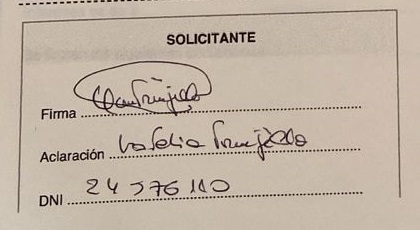 SOLICITANTE
Firma
Aclaración Trujillo
DNI 24 576 110